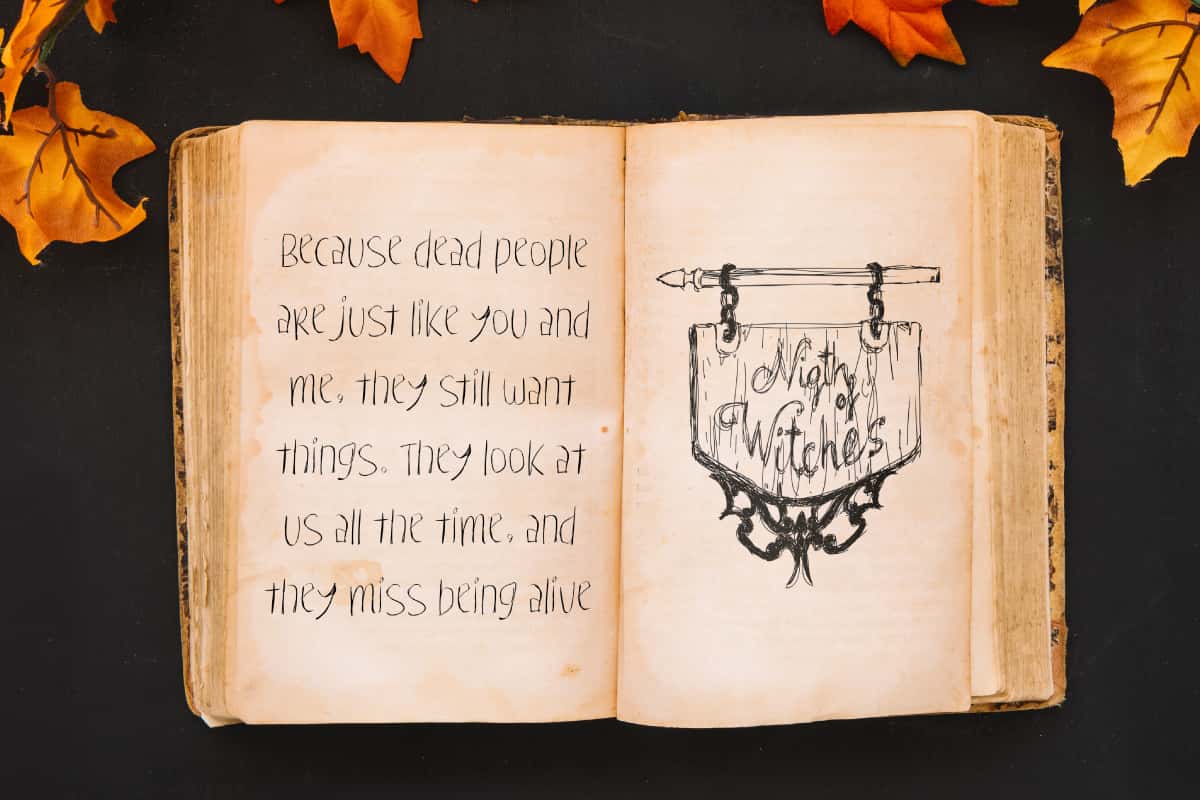 Because dead people
are just like you and
me, they still want
things. They look at
us all the time, and
they miss being alive
Nigth
of
Witches